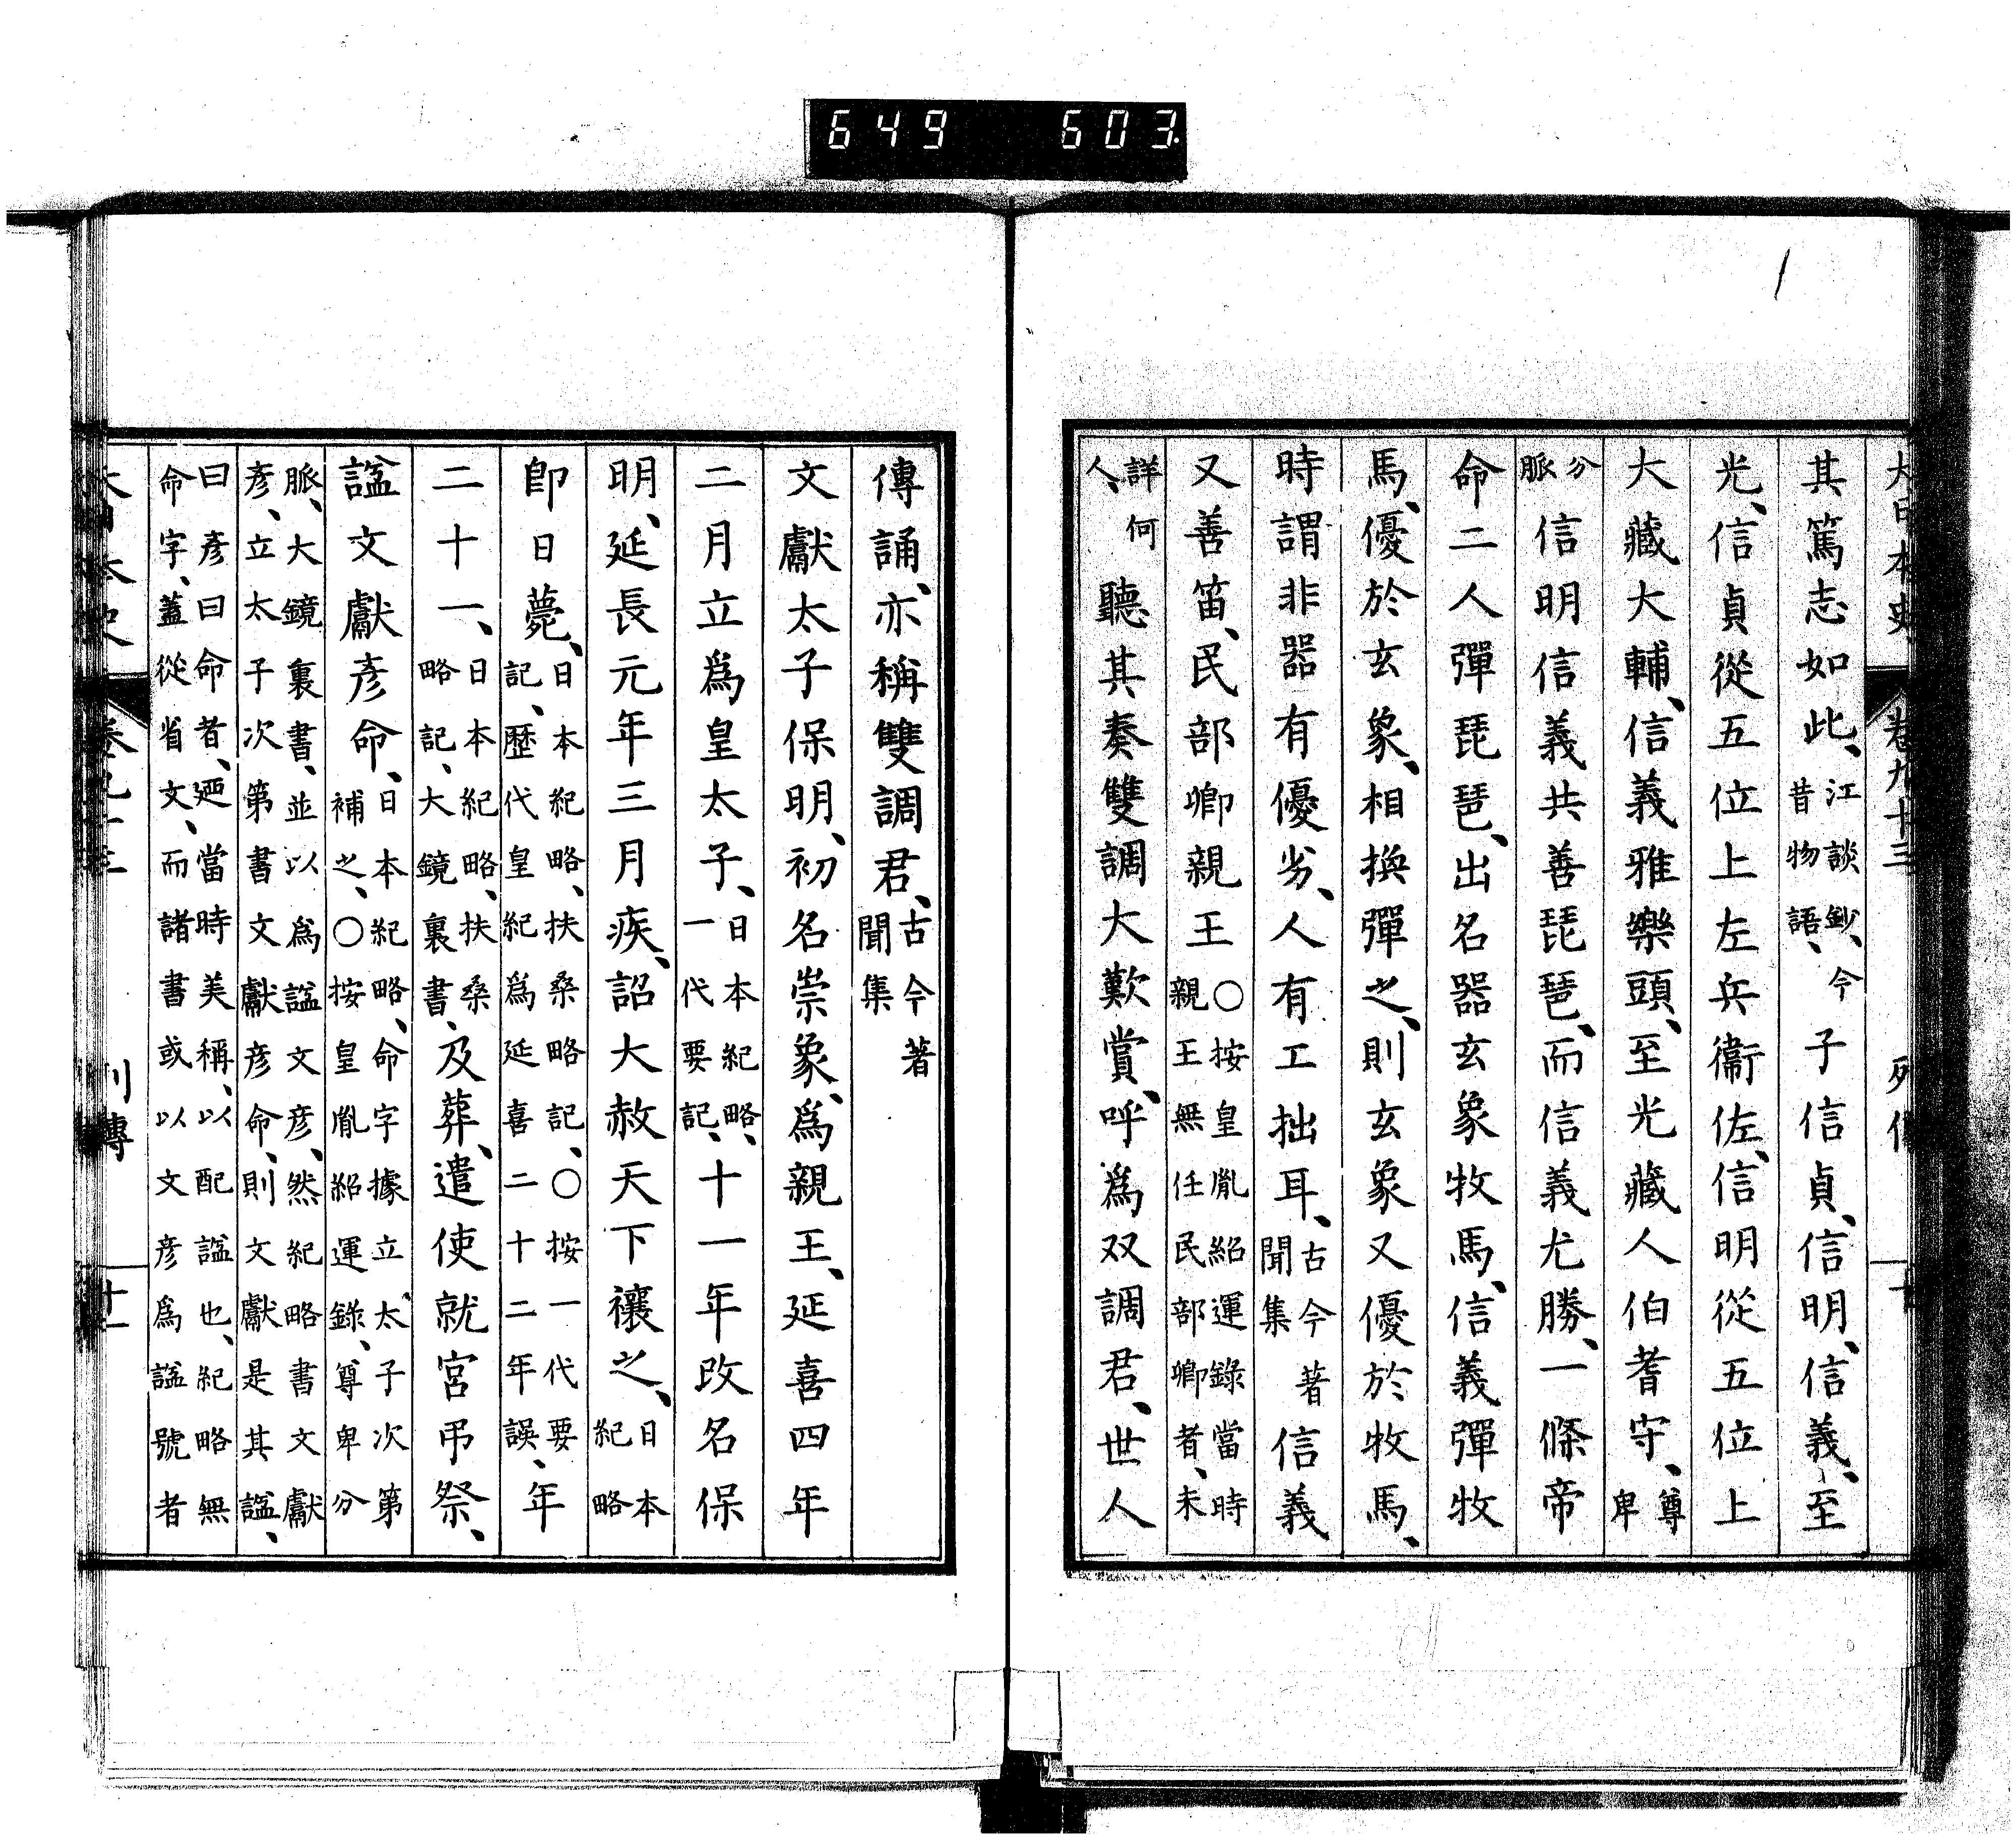 649 603
大日本史 卷九十三 列傳 十
其篤志如此、江談鈔、今昔物語、子信貞、信明、信義、至
光、信貞從五位上左兵衞佐、信明從五位上
大藏大輔、信義雅樂頭、至光藏人伯耆守、尊卑
分脈信明信義共善琵琶、而信義尤勝、一條帝
命二人彈琵琶、出名器玄象牧馬、信義彈牧
馬、優於玄象、相換彈之、則玄象又優於牧馬、
時謂非器有優劣、人有工拙耳、古今著聞集信義
又善笛、民部卿親王○按皇胤紹運錄當時親王無任民部卿者、未
詳何人、聽其奏雙調大歎賞、呼爲双調君、世人
傳誦、亦稱雙調君、古今著聞集
文獻太子保明、初名崇象、爲親王、延喜四年
二月立爲皇太子、日本紀略、一代要記、十一年改名保
明、延長元年三月疾、詔大赦天下禳之、日本紀略
卽日薨、日本紀略、扶桑略記、○按一代要記、歷代皇紀爲延喜二十二年誤、年
二十一、日本紀略、扶桑略記、大鏡裏書、及葬、遣使就宮弔祭、
諡文獻彥命、日本紀略、命字據立太子次第補之、○按皇胤紹運錄、尊卑分
脈、大鏡裏書、並以爲諡文彥、然紀略書文獻彥、立太子次第書文獻彥命、則文獻是其諡、
曰彥曰命者、廼當時美稱、以配諡也、紀略無命字、蓋從省文、而諸書或以文彥爲諡號者
大日本史 卷九十三 列傳 十一